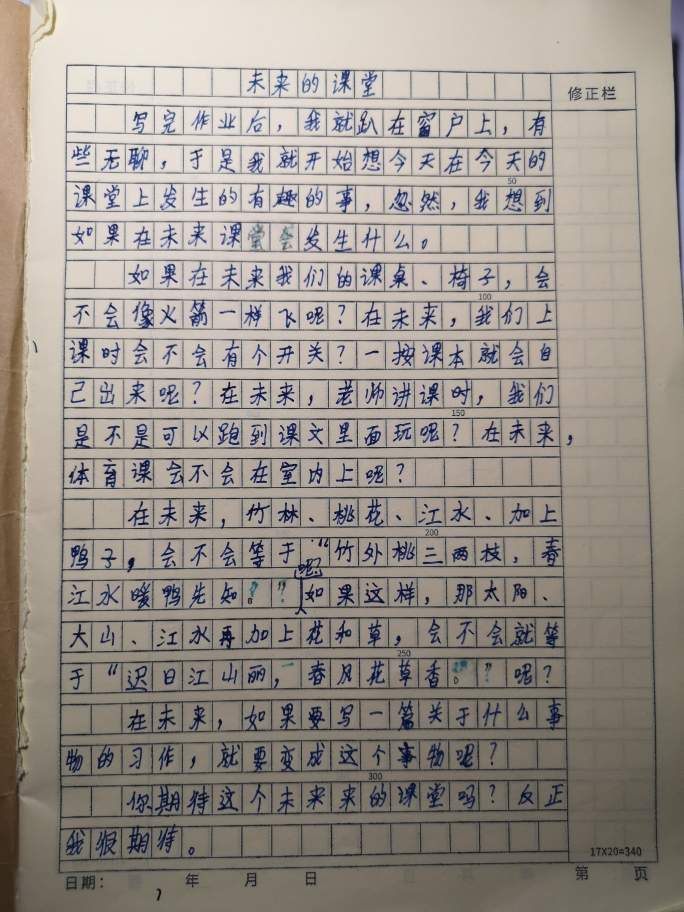 未来的课堂
修正栏
写完作业后，我就趴在窗户上，有
些无聊，于是我就开始想今天在今天的
50
课堂上发生的有趣的事，忽然，我想到
如果在未来课堂会发生什么。
如果在未来我们的课桌、椅子，会
100
不会像火箭一样飞呢？在未来，我们上
课时会不会有个开关？一按课本就会自
己出来呢？在未来，老师讲课时，我们
150
是不是可以跑到课文里面玩呢？在未来，
体育课会不会在室内上呢？
在未来，竹林、桃花、江水、加上
200
鸭子，会不会等于“竹外桃三两枝，春
江水暖鸭先知？”呢？如果这样，那太阳、
大山、江水再加上花和草，会不会就等
250
于“迟日江山丽，春月花草香。”呢？
在未来，如果要写一篇关于什么事
物的习作，就要变成这个事物呢？
300
你期待这个未来来的课堂吗？反正
我很期待。
17X20=340
日期： 年 月 日 第 页